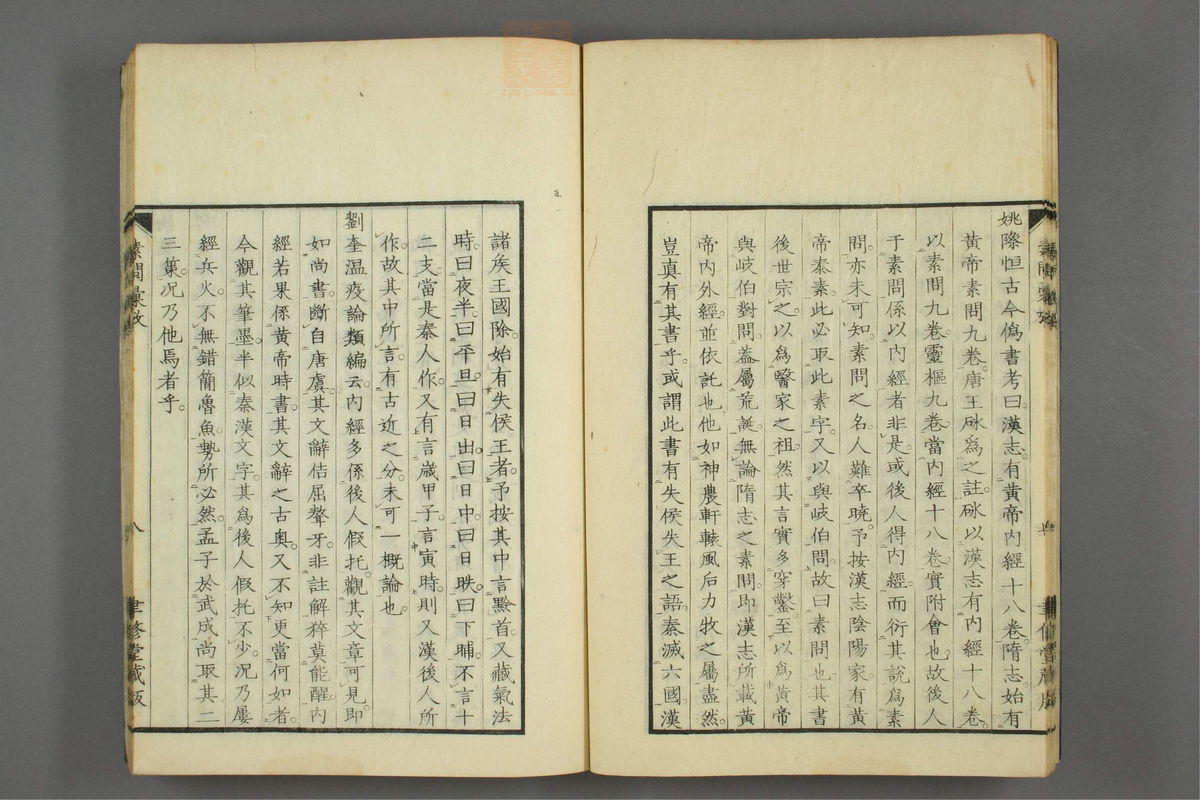 姚際恒古今僞書考曰漢志有黃帝內經十八卷隋志始有
黃帝素問九卷唐王砅爲之註砅以漢志有內經十八卷
以素問九卷靈樞九卷當內經十八卷實附會也故後人
于素問係以內經者非是或後人得內經而衍其說爲素
問亦未可知素問之名人難卒曉予按漢志陰陽家有黃
帝泰素此必取此素字又以與岐伯問故曰素問也其書
後世宗之以爲醫家之祖然其言實多穿鑿至以爲黃帝
與岐伯對問蓋屬荒誕無論隋志之素問即漢志所載黃
帝內外經並依託也他如神農軒轅風后力牧之屬盡然
豈真有其書乎或謂此書有失侯失王之語秦滅六國漢
諸矦王國除始有失侯王者予按其中言黔首又藏氣法
時曰夜半曰平旦曰日出曰日中曰日昳曰下晡不言十
二支當是秦人作又有言歲甲子言寅時則又漢後人所
作故其中所言有古近之分未可一概論也
劉奎溫疫論類編云內經多係後人假托觀其文章可見即
如尚書斷自唐虞其文辭佶屈聱牙非註解猝莫能醒內
經若果係黃帝時書其文辭之古奧又不知更當何如者
今觀其筆墨半似秦漢文字其爲後人假托不少況乃屢
經兵火不無錯簡魯魚勢所必然孟子於武成尚取其二
三策況乃他焉者乎
素問彙攷
八
聿修堂藏版